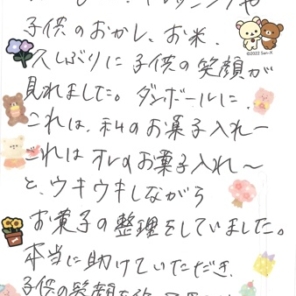 子供のおかし、お米、
久しぶりに子供の笑顔が
見れました。ダンボールに、
これは、私のお菓子入れ〜
これはオレのお菓子入れ〜
と、ウキウキしながら
お菓子の整理をしていました。
本当に助けていただき、
子供の笑顔を